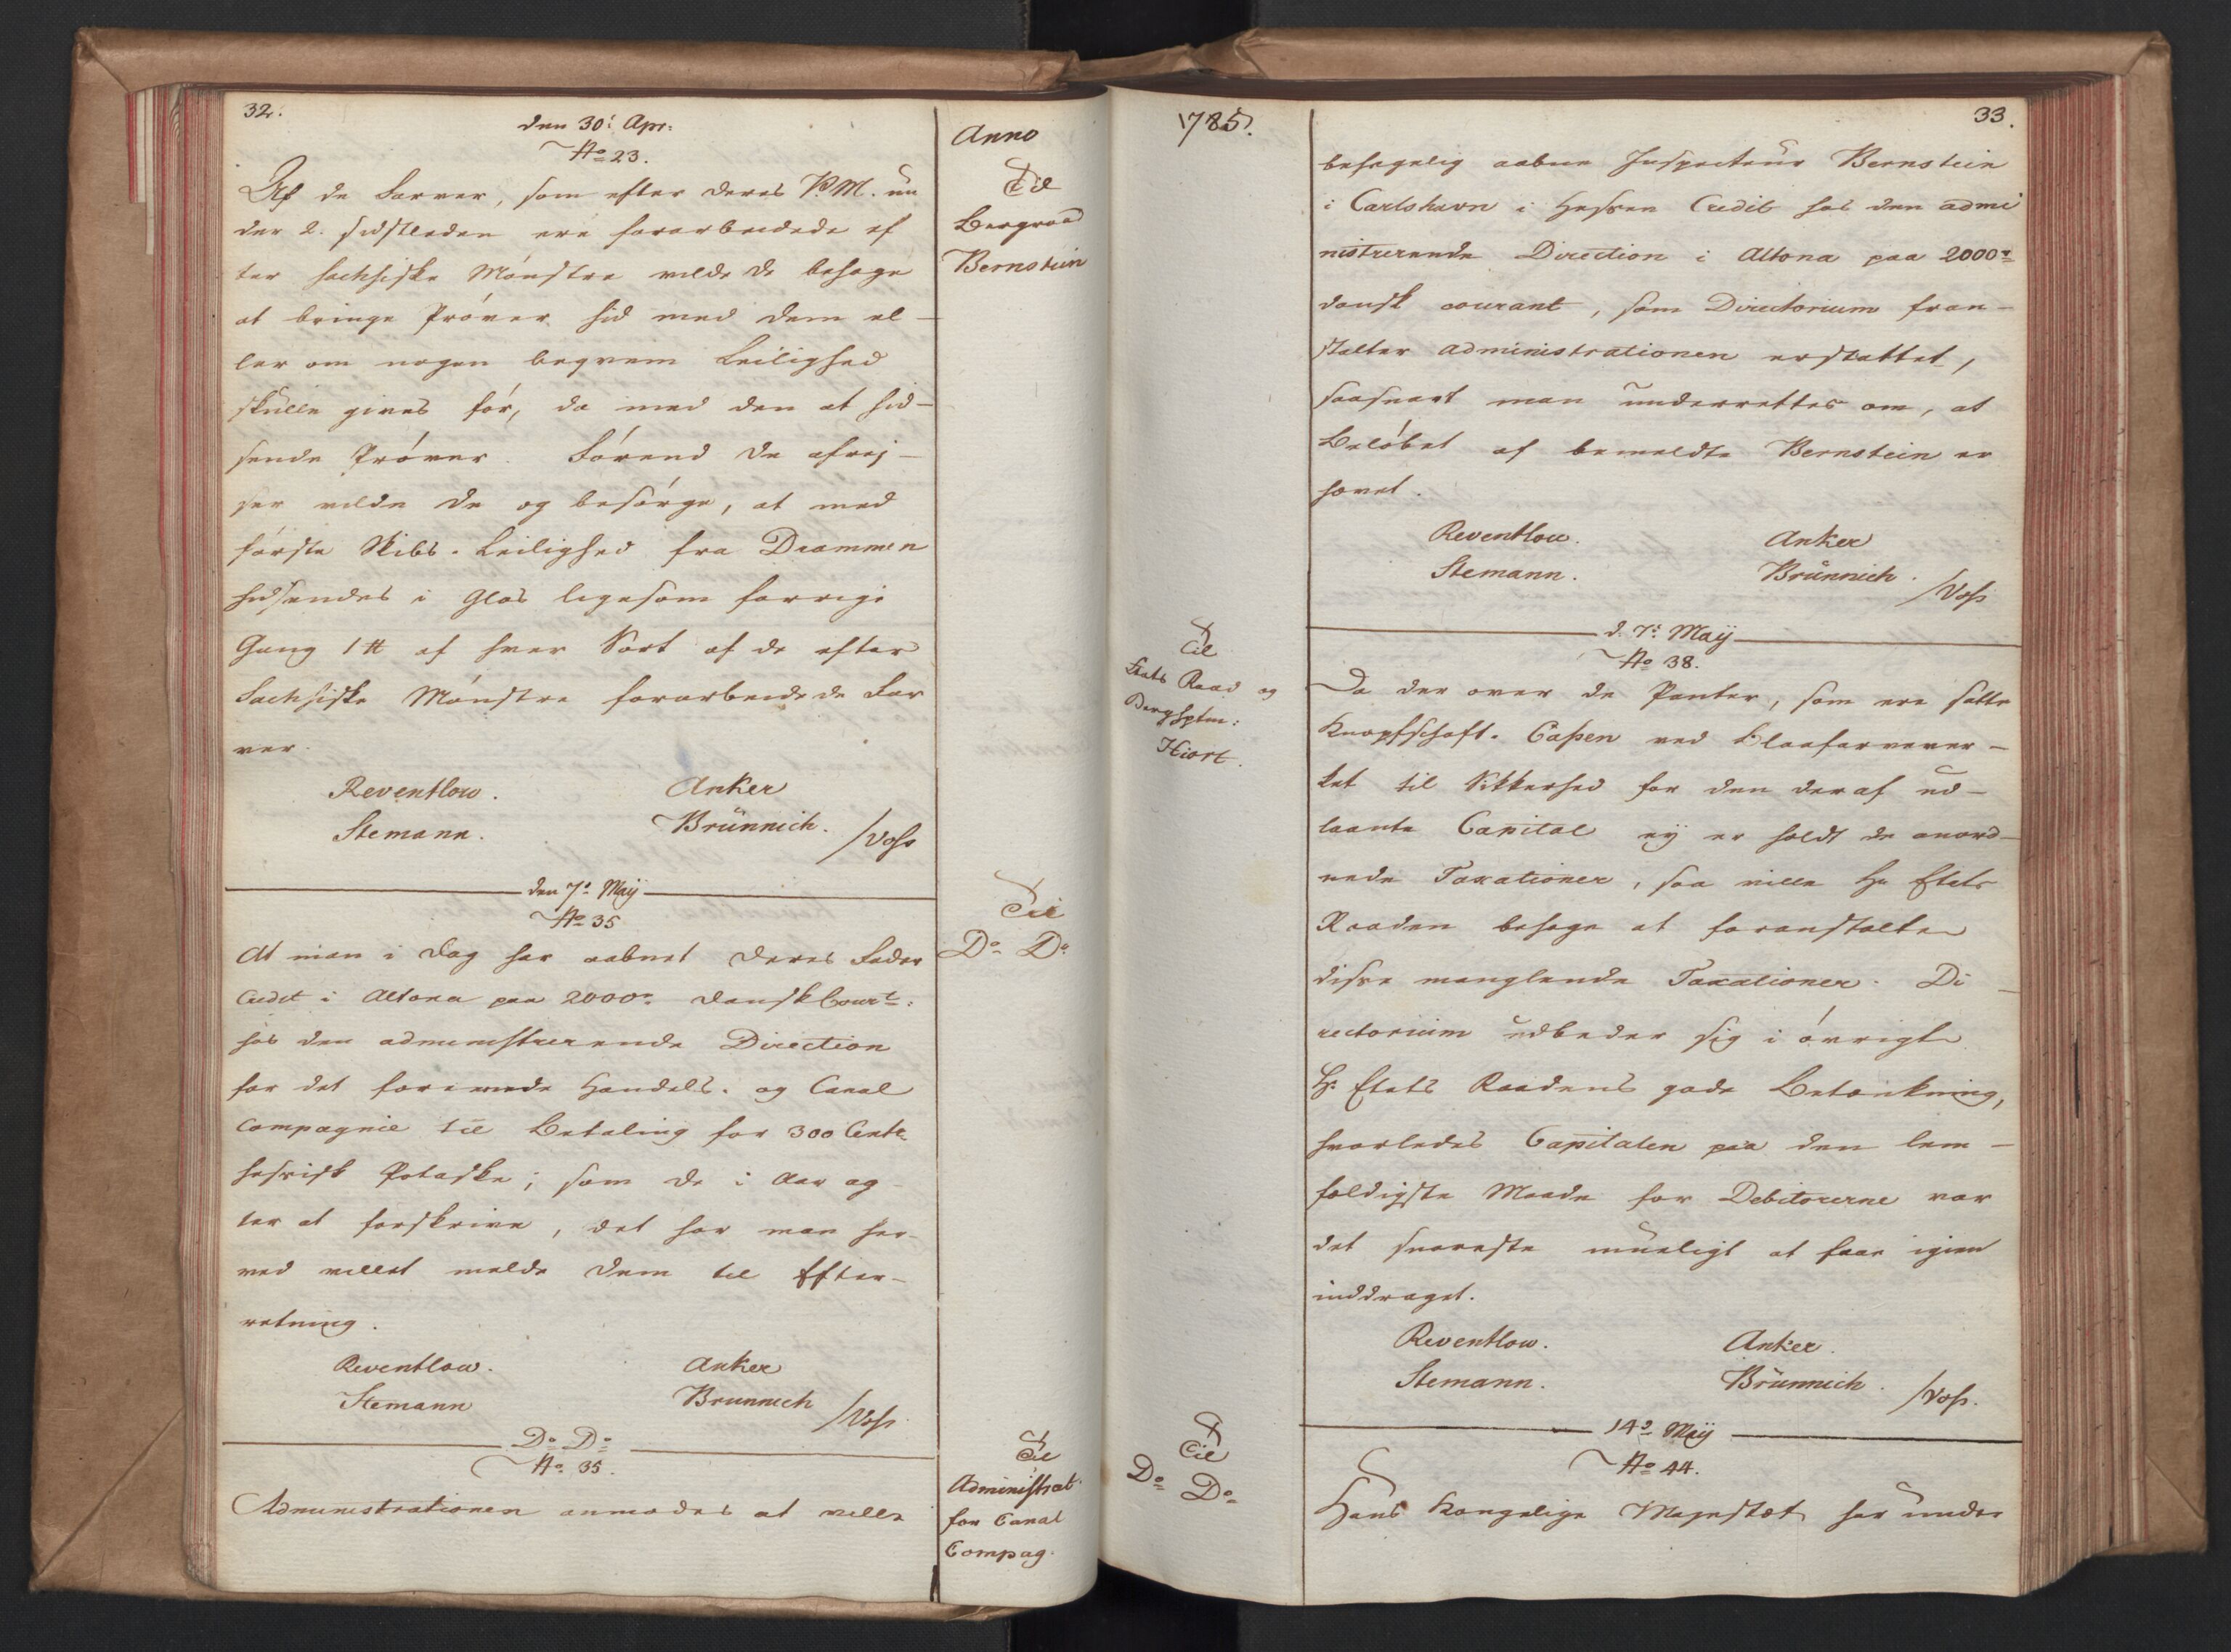 32.
den 30: Apr:
No 23.
Af de Farver, som efter deres P.M. un
der 2. sidstleden ere forarbeidede ef
ter sachsiske Mönstre vilde de besørge
at bringe Pröver hid med dem el-
ler om nogen beqvem Leilighed
skulle gives för, da med den at hid-
sende Pröver. Förend de afrej-
ser vilde de og besörge, at med
förste Skibs-Leilighed fra Drammen
hidsendes i Glas ligesom forrige
Gang 1 ℔ af hver Sort af de efter
Sachsiske Mönstre forarbeidede Far
ver.
Reventlow. Anker
Stemann. Brünnich. /Voss
den 7de Maÿ
No 35
At man i Dag har aabnet deres Fader
Credit i Altona paa 2000 r. dansk Court:
hos den administrerende Direction
for det forenede Handels- og Canal
Compagnie til Betaling for 300 Centr.
hessisk Potaske, som de i Aar ag
ter at forskrive, det har man her-
ved villet melde dem til Efter-
retning.
Reventlow. Anker
Stemann Brunnich /Voss
Do Do
No 35.
Administrationen anmodes at ville
Anno
Til
Bergraad
Bernstein
Til
Do Do
Til
Administrat.
for Canal
Compag.
1785.
Til
Etats Raad og
Berghptm:
Hiort.
Til
Do Do
33.
behagelig aabne Inspecteur Bernstein
i Carlshavn i Hessen Credit hos den admi
nistrerende Direction i Altona paa 2000 r
dansk courant, som Directorium fran-
stalter Administrationen erstattet,
saasnart man underrettes om, at
Belöbet af bemeldte Bernstein er
hævet.
Reventlow. Anker
Stemann. Brünnich. /Voss
d. 7: Maÿ
No 38.
Da der over de Panter, som ere satte
Knapfschaft-Cassen ved Blaafarvever-
ket til Sikkerhed for den deraf ud-
laante Capital eÿ er holdt de anord-
nede Taxationer, saa ville Hr Etats
Raaden behage at foranstalte
disse manglende Taxationer. Di-
rectorium udbeder sig i övrigt
Hr. Etats Raadens gode Betænkning,
hvorledes Capitalen paa den lem-
fældigste Maade for Debitorerne var
det snareste mueligt at faae igien
inddraget.
Reventlow. Anker.
Stemann. Brünnich. /Voss.
14de Maÿ
No 44.
Hans Kongelige Majestæt har under